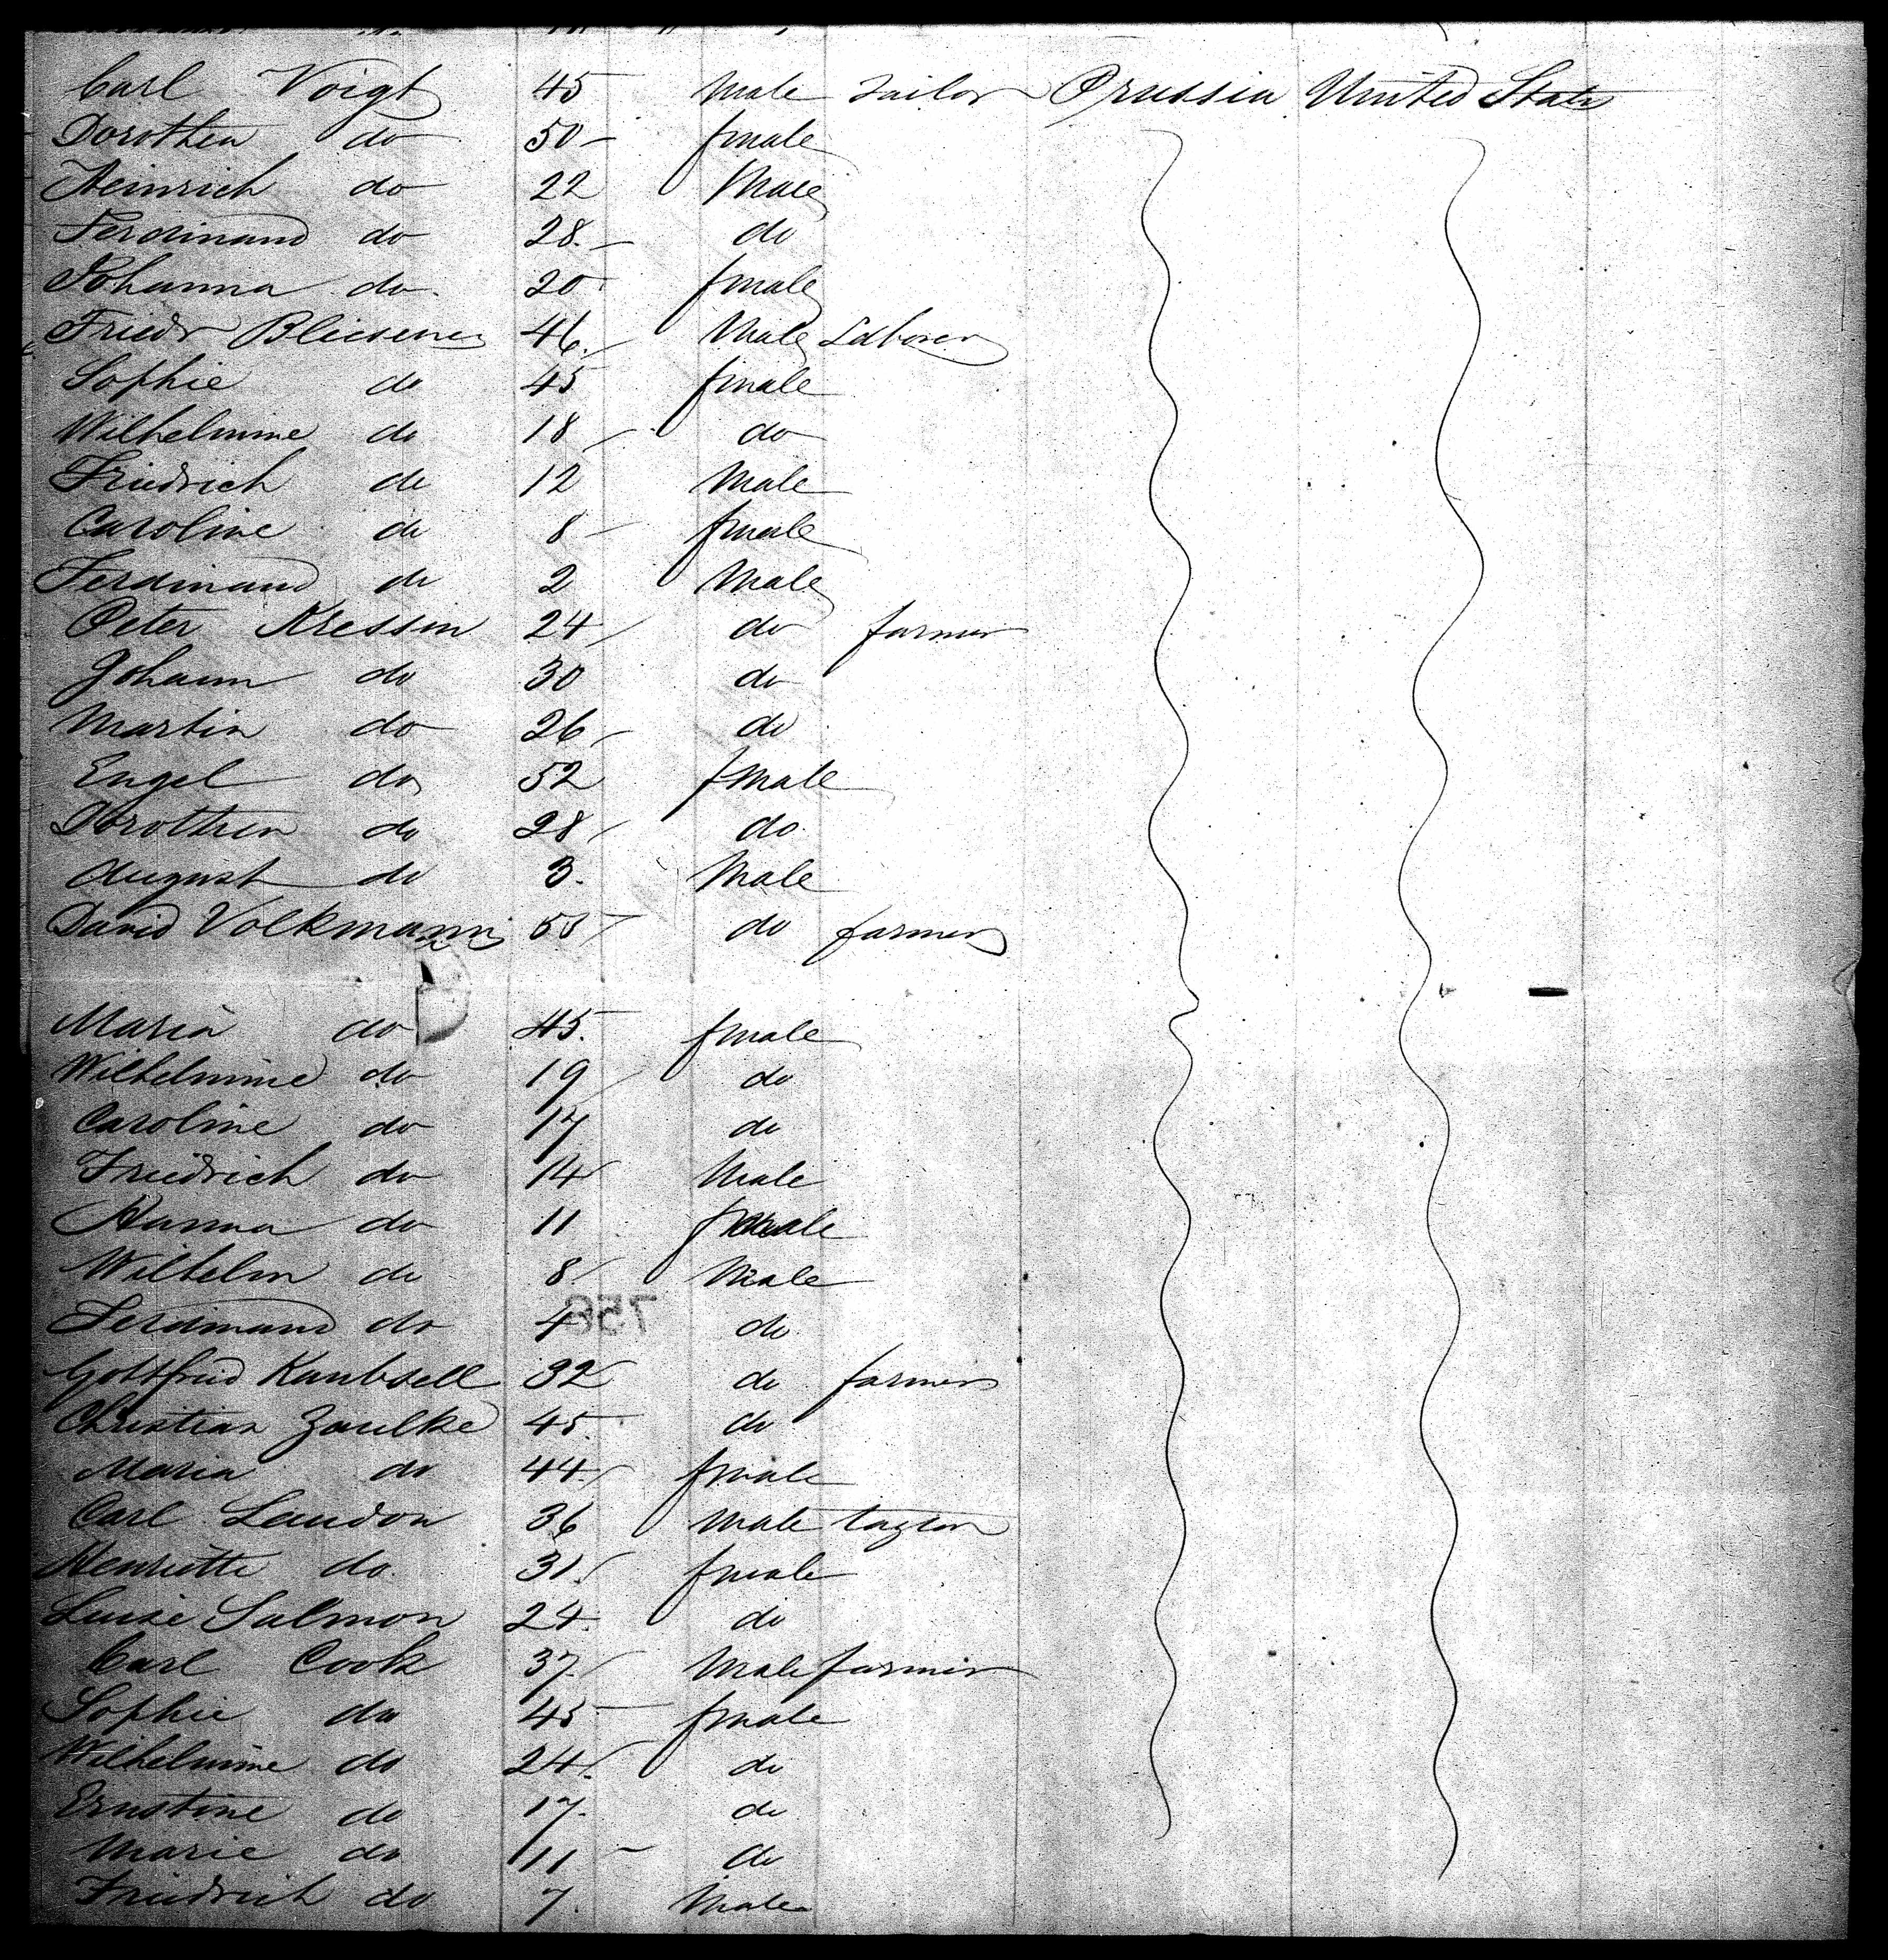 Carl Voigt 45 Male Tailor Prussia United States
Dorothea do 50 female
Heinrich do 22 Male
Ferdinand do 28 do
Johanna do 20 female
Friedr Bliesener 46 Male Laborer
Sophie do 45 female
Wilhelmine do 18 do
Friedrich do 12 Male
Caroline do 8 female
Ferdinand do 2 Male
Peter Kressin 24 do farmer
Johann do 30 do
Martin do 26 do
Engel do 52 female
Dorothea do 28 do
August do 3 Male
David Volkmann do farmer
Maria do 45 female
Wilhelmine do 19 do
Caroline do 17 do
Friedrich do 14 Male
Hanna do 11 female
Wilhelm do 8 Male
Ferdinand do 4 do
758
Gottfried 32 do farmer
Christian Zaulke 45 do
Maria do 44 female
Carl Laudon 36 Male
Henriette do 31 female
Luise Salmon 24 do
Carl Cook 37 Male farmer
Sophie do 45 female
Wilhelmine do 24 do
Ernstine do 17 do
Marie do 11 do
Friedrich do 7 Male